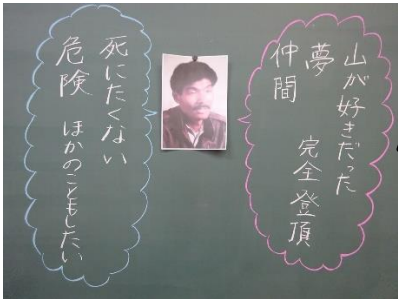 山が好きだった
夢
仲間
完全登頂
死にたくない
危険 ほかのこともしたい